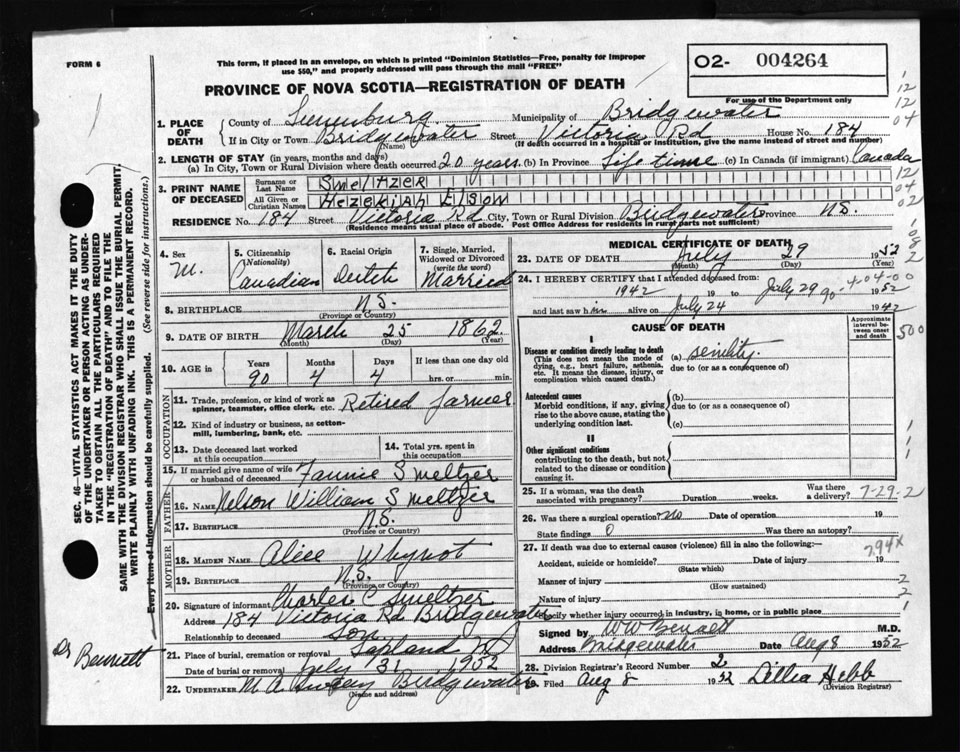 FORM 6
This form, if placed in an envelope, on which is printed "Dominion Statistics—Free, penalty for improper
use $50," and properly addressed will pass through the mail "FREE"
O2- 004264
PROVINCE OF NOVA SCOTIA—REGISTRATION OF DEATH
For use of the Department only
12
12
04
1. PLACE OF DEATH
County of Lunenburg Municipality of Bridgewater
If in City or Town Bridgewater Street Victoria Rd House No. 184
(Name) (If death occurred in a hospital or institution, give the name instead of street and number)
2. LENGTH OF STAY (in years, months and days)
(a) In City, Town or Rural Division where death occurred 20 years (b) In Province Life time (c) In Canada (if immigrant) Canada
12
3. PRINT NAME OF DECEASED
Surname or Last Name SMELTZER
04
All Given or Christian Names HEZEKIAH ELSON
02
RESIDENCE No. 184 Street Victoria Rd City, Town or Rural Division Bridgewater Province N.S.
(Residence means usual place of abode. Post Office Address for residents in rural parts not sufficient)
4. Sex M.
5. Citizenship (Nationality) Canadian
6. Racial Origin Dutch
7. Single, Married, Widowed or Divorced (write the word) Married
8. BIRTHPLACE N.S.
(Province or Country)
9. DATE OF BIRTH March 25 1862
(Month) (Day) (Year)
10. AGE in Years Months Days If less than one day old
90 4 4 hrs. or min.
OCCUPATION
11. Trade, profession, or kind of work as
spinner, teamster, office clerk, etc. Retired farmer
12. Kind of industry or business, as cotton-
mill, lumbering, bank, etc.
13. Date deceased last worked at this occupation
14. Total yrs. spent in this occupation
15. If married give name of wife
or husband of deceased Fannie Smeltzer
FATHER
16. Name Nelson William Smeltzer
17. BIRTHPLACE N.S.
(Province or Country)
MOTHER
18. MAIDEN NAME Alice Whynot
19. BIRTHPLACE N.S.
(Province or Country)
20. Signature of informant Charles C Smeltzer
Address 184 Victoria Rd Bridgewater
Relationship to deceased Son
21. Place of burial, cremation or removal Lapland
Date of burial or removal July 31 1952
22. UNDERTAKER M. A. Bridgewater
(Name and address)
MEDICAL CERTIFICATE OF DEATH
23. DATE OF DEATH July 29 1952
(Month) (Day) (Year)
24. I HEREBY CERTIFY that I attended deceased from:
1942 19 to July 29 1952
90-4-04-00
and last saw him alive on July 24 1942
CAUSE OF DEATH
Approximate interval between onset and death
500
I
Disease or condition directly leading to death (a) senility.
(This does not mean the mode of dying, e.g., heart failure, asthenia, etc. It means the disease, injury, or complication which caused death.)
due to (or as a consequence of)
Antecedent causes
Morbid conditions, if any, giving rise to the above cause, stating the underlying condition last.
(b)
due to (or as a consequence of)
(c)
II
Other significant conditions
contributing to the death, but not related to the disease or condition causing it.
25. If a woman, was the death associated with pregnancy? Duration weeks. Was there a delivery? 7-29-2
26. Was there a surgical operation? No Date of operation 19
State findings 0 Was there an autopsy?
27. If death was due to external causes (violence) fill in also the following:—
794x
Accident, suicide or homicide? Date of injury 19
(State which)
Manner of injury
(How sustained)
Nature of injury
Specify whether injury occurred in industry, in home, or in public place
Signed by W W Bennett M.D.
Address Bridgewater Date Aug 8 1952
28. Division Registrar's Record Number 2
29. Filed Aug 8 1952 Lillia Hebb
(Division Registrar)
Dr Bennett
SEC. 46—VITAL STATISTICS ACT MAKES IT THE DUTY
OF THE UNDERTAKER OR PERSON ACTING AS UNDER-
TAKER TO OBTAIN ALL THE PARTICULARS REQUIRED
IN THE "REGISTRATION OF DEATH" AND TO FILE THE
SAME WITH THE DIVISION REGISTRAR WHO SHALL ISSUE THE BURIAL PERMIT.
WRITE PLAINLY WITH UNFADING INK. THIS IS A PERMANENT RECORD.
Every item of information should be carefully supplied. (See reverse side for instructions.)